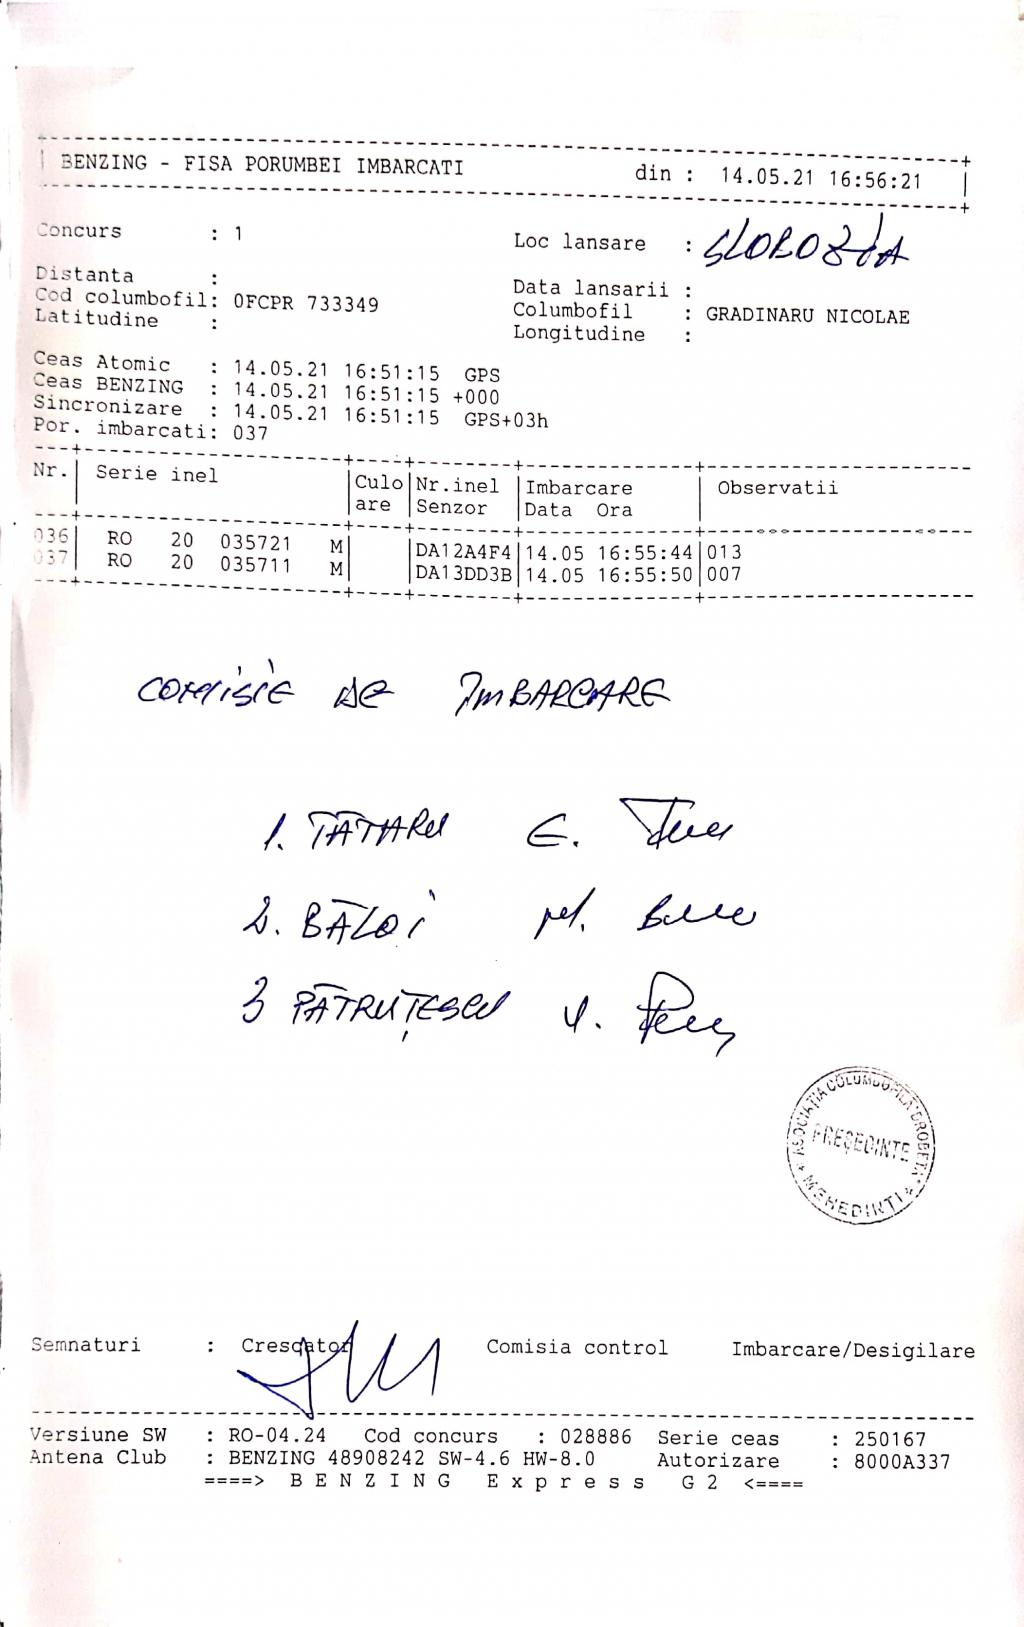 BENZING - FISA PORUMBEI IMBARCATI din : 14.05.21 16:56:21
Concurs : 1 Loc lansare : SLOBOZIA
Distanta : Data lansarii :
Cod columbofil: 0FCPR 733349 Columbofil : GRADINARU NICOLAE
Latitudine : Longitudine :
Ceas Atomic : 14.05.21 16:51:15 GPS
Ceas BENZING : 14.05.21 16:51:15 +000
Sincronizare : 14.05.21 16:51:15 GPS+03h
Por. imbarcati: 037
Nr. Serie inel Culo Nr.inel Imbarcare Observatii
are Senzor Data Ora
036 RO 20 035721 M DA12A4F4 14.05 16:55:44 013
037 RO 20 035711 M DA13DD3B 14.05 16:55:50 007
COMISIE DE IMBARCARE
1. TĂTARU E.
2. BĂLOI
3 PĂTRUȚESCU V.
ASOCIATIA COLUMBOFILA DROBETA
PREȘEDINTE
MEHEDINTI
Semnaturi : Crescator Comisia control Imbarcare/Desigilare
Versiune SW : RO-04.24 Cod concurs : 028886 Serie ceas : 250167
Antena Club : BENZING 48908242 SW-4.6 HW-8.0 Autorizare : 8000A337
====> B E N Z I N G E x p r e s s G 2 <====